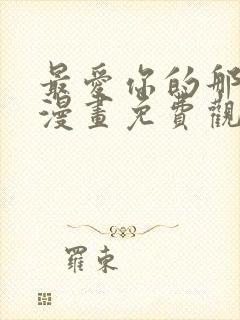 最愛你的那
漫畫免費觀
羅東